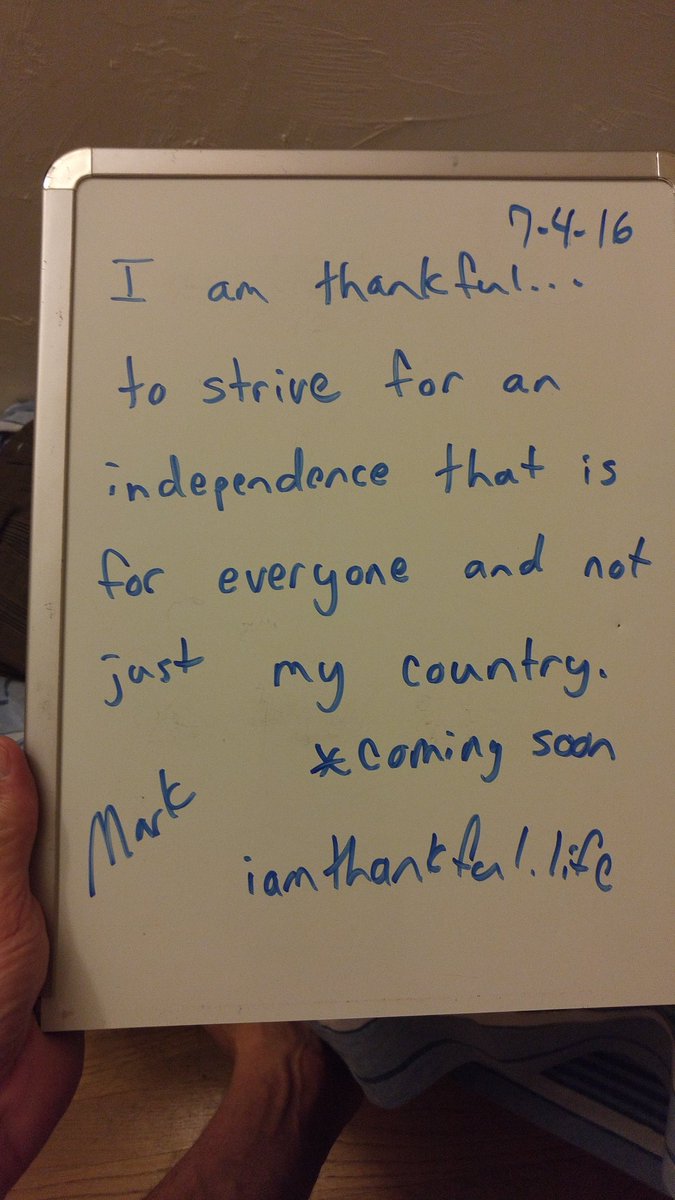 7-4-16
I am thankful...
to strive for an
independence that is
for everyone and not
just my country.
*coming soon
Mark
iamthankful.life